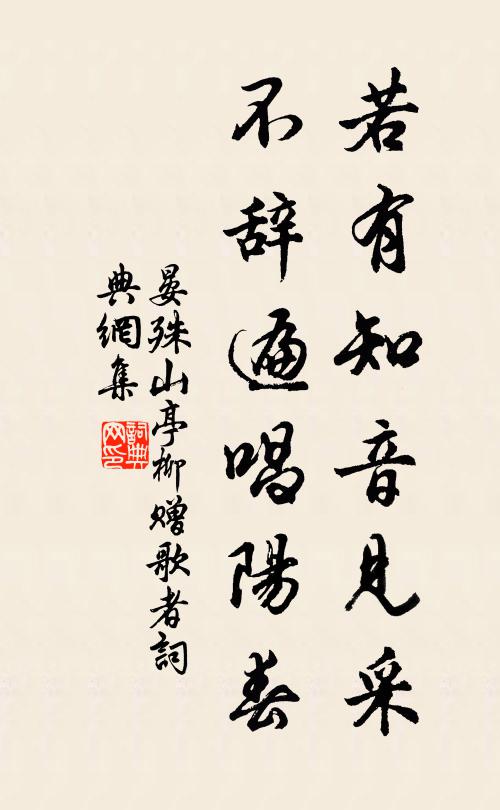 若有知音見采
不辞遍唱陽春
晏殊山亭柳贈歌者詞
典網集
詞典
网印